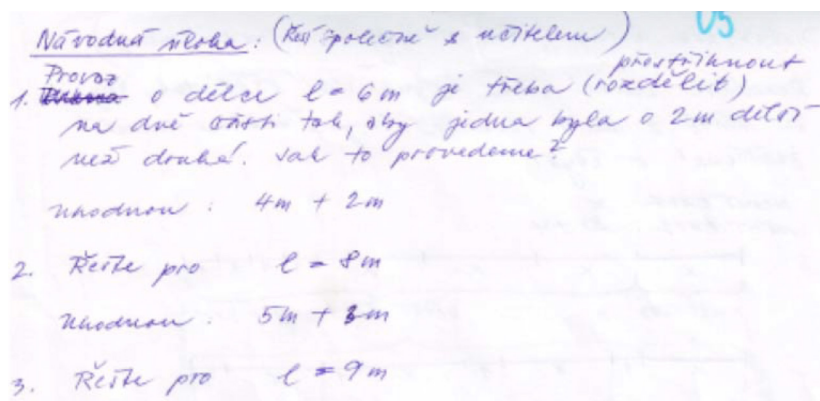 U5
Návodná úloha: (Řeší společně s učitelem)
přestřihnout
Provaz
1. o délce l = 6m je třeba (rozdělit)
na dvě části tak, aby jedna byla o 2m delší
než druhá. Jak to provedeme?
Uhodnou: 4m + 2m
2. Řešte pro l = 8m
Uhodnou: 5m + 3m
3. Řešte pro l = 9m